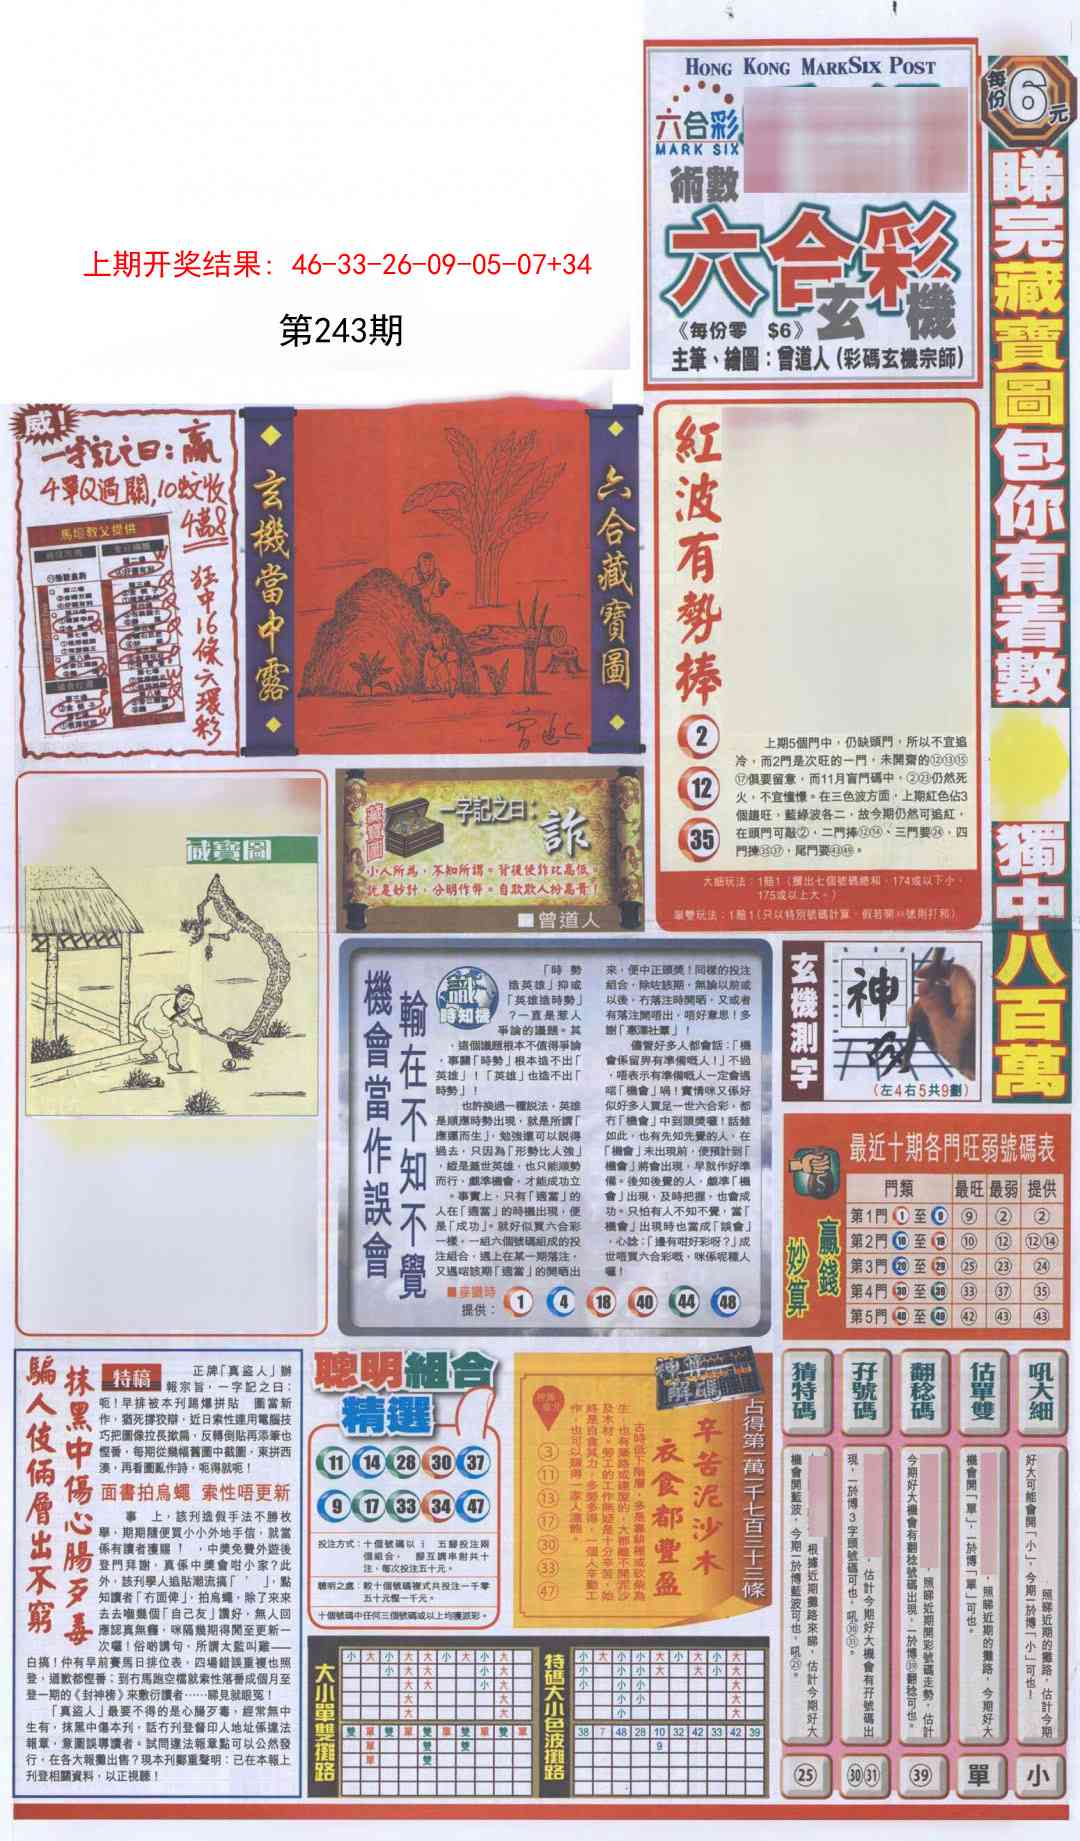 HONG KONG MARKSIX POST
六合彩
MARK SIX
術數
六合彩
玄機
《每份零 $6》
主筆、繪圖：曾道人（彩碼玄機宗師）
每份6元
睇完藏寶圖包你有着數
獨中八百萬
上期开奖结果: 46-33-26-09-05-07+34
第243期
威!
一字記之曰：贏
4單Q過關,10蚊收
4萬8
狂中16條六環彩
馬壇教父提供
玄機當中露
六合藏寶圖
紅波有勢捧
2
12
35
上期5個門中，仍缺頭門，所以不宜追
冷，而2門是次旺的一門，未開齋的⑫⑬⑮
⑰俱要留意，而11月盲門碼中，②㉓仍然死
火，不宜憧憬。在三色波方面，上期紅色佔3
個趨旺，藍綠波各二，故今期仍然可追紅，
在頭門可敲②，二門捧⑫⑭、三門要㉔，四
門揀㉟㊲，尾門要㊸㊾。
大細玩法：1賠1（攪出七個號碼總和，174或以下小，
175或以上大。）
單雙玩法：1賠1（只以特別號碼計算，假若開49號則打和）
藏寶圖
藏寶圖
一字記之曰：
詐
小人所為，不知所謂。背後使詐比高低。
說是妙計，分明作弊。自欺欺人扮高貴！
曾道人
機會當作誤會
輸在不知不覺
識時知機
「時勢
造英雄」抑或
「英雄造時勢」
？一直是惹人
爭論的議題。其
，這個議題根本不值得爭論
，事關「時勢」根本造不出「
英雄」！「英雄」也造不出「
時勢」！
也許換過一種說法，英雄
是順應時勢出現，就是所謂「
應運而生」，勉強還可以說得
過去，只因為「形勢比人強」
，縱是蓋世英雄，也只能順勢
而行，覷準機會，才能成功立
。事實上，只有「適當」的
人在「適當」的時機出現，便
是「成功」。就好似買六合彩
一樣，一組六個號碼組成的投
注組合，遇上在某一期落注，
又遇啱該期「適當」的開晒出
來，便中正頭獎！同樣的投注
組合，除咗該期，無論以前或
以後，冇落注時開晒，又或者
有落注開唔出，唔好意思！多
謝「惠澤社羣」！
儘管好多人都會話：「機
會係留畀有準備嘅人！」不過
，唔表示有準備嘅人一定會遇
啱「機會」喎！實情咪又係好
似好多人買足一世六合彩，都
冇「機會」中到頭獎囉！話雖
如此，也有先知先覺的人，在
「機會」未出現前，便預計到「
機會」將會出現，早就作好準
備。後知後覺的人，覷準「機
會」出現，及時把握，也會成
功。只怕有人不知不覺，當「
機會」出現時也當成「誤會」
，心諗：「邊有咁好彩呀？」成
世唔買六合彩嘅，咪係呢種人
囉！
提供：
1 4 18 40 44 48
玄機測字
神
（左4右5共9劃）
最近十期各門旺弱號碼表
贏錢
妙算
門類 最旺 最弱 提供
第1門 1 至 9 ⑨ ② ②
第2門 10 至 19 ⑩ ⑫ ⑫⑭
第3門 20 至 29 ㉕ ㉓ ㉔
第4門 30 至 39 ㉝ ㊲ ㉟
第5門 40 至 49 ㊷ ㊸ ㊸
騙人伎倆層出不窮
抹黑中傷心腸歹毒
特稿
正牌「真盜人」辦
報宗旨，一字記之曰：
呃！早排被本刊踢爆拼貼 圖當新
作，猶死撐狡辯，近日索性連用電腦技
巧把圖像拉長撳扁，反轉倒貼再添筆也
慳番，每期從幾幅舊圖中截圖，東拼西
湊，再看圖亂作詩，呃得就呃！
面書拍烏蠅 索性唔更新
事上，該刊造假手法不勝枚
舉，期期隨便買小小外地手信，就當
係有讀者獲賜！ ，中獎免費外遊後
登門拜謝，真係中獎會咁小家？此
外，該刊學人追貼潮流搞「 」，點
知讀者「冇面俾」，拍烏蠅，除了來來
去去嗰幾個「自己友」讚好，無人回
應認真無癮，咪隔幾期得閒至更新一
次囉！俗啲講句，所謂太監叫雞──
白搞！仲有早前賽馬日排位表，四場錯誤重複也照
登，道歉都慳番；到冇馬跑空檔就索性落番成個月至
登一期的《封神榜》來敷衍讀者……睇見就眼冤！
「真盜人」最要不得的是心腸歹毒，經常無中
生有，抹黑中傷本刊，話冇刊登督印人地址係違法
報章，意圖誤導讀者。試問違法報章點可以公然發
行，在各大報攤出售？現本刊鄭重聲明：已在本報上
刊登相關資料，以正視聽！
聰明組合
精選
11 14 28 30 37
9 17 33 34 47
投注方式：十個號碼以 五膽投注兩
個組合， 膽互調串射共十
注，每次投注五十元。
聰明之處：較十個號碼複式共投注一千零
五十元慳一千元。
十個號碼中任何三個號碼或以上均獲派彩。
占得第二萬一千七百三十三條
辛苦泥沙木
衣食都豐盈
古時低下階層，多是靠耕種或砍柴為
生，也有築路或建屋的，大都離不開泥沙
及木材。勞工的工作無疑是十分辛苦，始
終是自食其力，多勞多得，一個人辛勤工
作，也可以賺得一家人溫飽。
3
11
13
17
30
33
47
大小單雙攤路
小 大 小 大 大 小 大 小 大
雙 單 單 雙 雙 單 雙 單 單
特碼大小色波攤路
小 大 小 小 大 大 大 大 大
38 7 48 28 10 32 42 33 42 39
9
猜特碼
根據近期攤路來睇，估計今期好大
機會開藍波，今期一於博藍波可也，吼㉕。
㉕
孖號碼
，估計今期好大機會有孖號碼出
現，一於博3字頭號碼可也，吼㉚㉛。
㉚㉛
翻稔碼
，照睇近期開彩號碼走勢，估計
今期好大機會有翻稔號碼出現，一於博㊴翻稔可也。
㊴
估單雙
，照睇近期的攤路，今期好大
機會開「單」，一於博「單」可也。
單
吼大細
照睇近期的攤路，估計今期
好大可能會開「小」，今期一於博「小」可也！
小